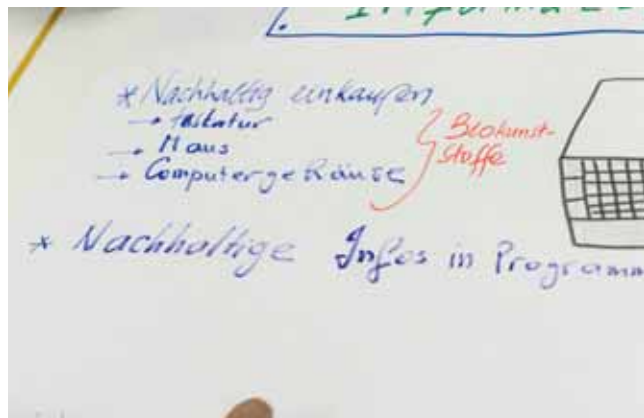 * Nachhaltig einkaufen
→ Tastatur
→ Maus
→ Computergehäuse
Biokunst-
stoffe
* Nachhaltige Infos in Programm